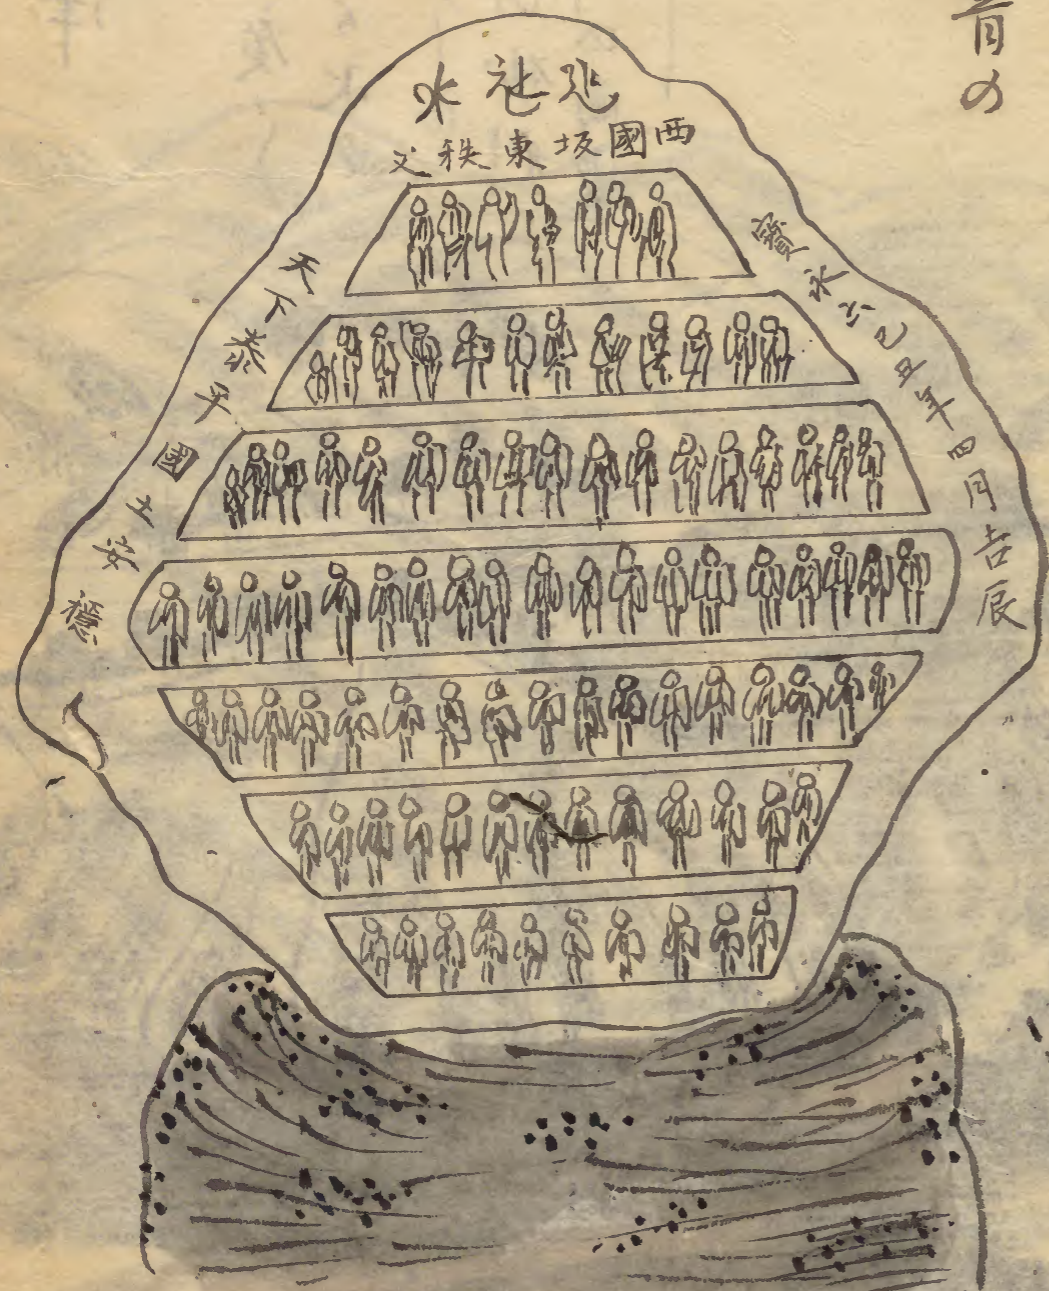 の
社水
西國坂東秩父
寶永六己丑年四月吉辰
天下泰平國土安穩